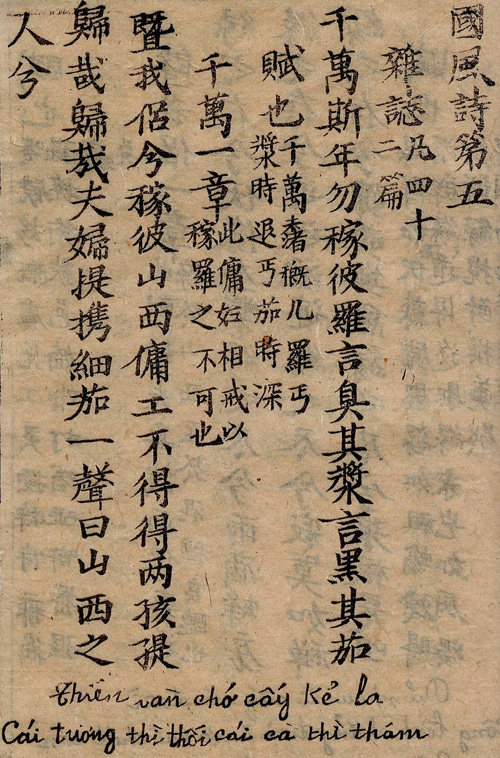 國風詩第五
雜誌凡四十
二篇
千萬斯年勿稼彼羅言臭其漿言黑其茄
賦也千萬概几羅丐
漿時退丐茄時深
千萬一章此傭妇相戒以
稼羅之不可也
暨我侶兮稼彼山西傭工不得得两孩提
歸哉歸哉夫婦提携細茄一聲曰山西之
人兮
Thiên vàn chớ cấy kẻ la
Cái tương thì thối cái ca thì thám